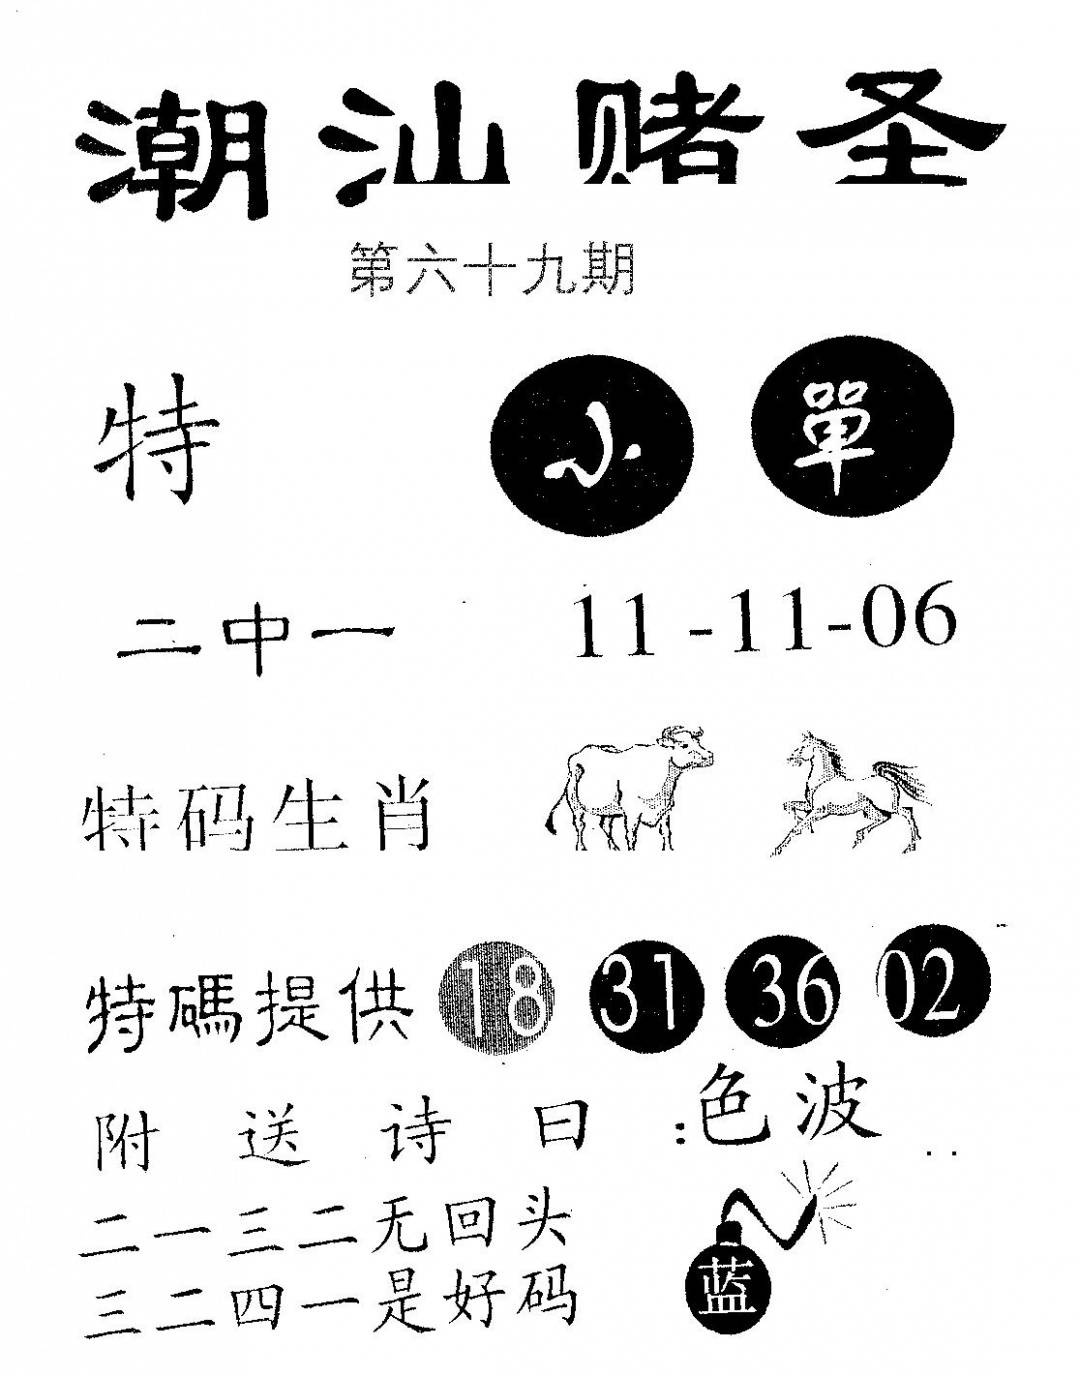 潮汕赌圣
第六十九期
特 小 單
二中一 11-11-06
特码生肖
特碼提供 18 31 36 02
附送诗曰: 色波
二一三二无回头
三二四一是好码
蓝